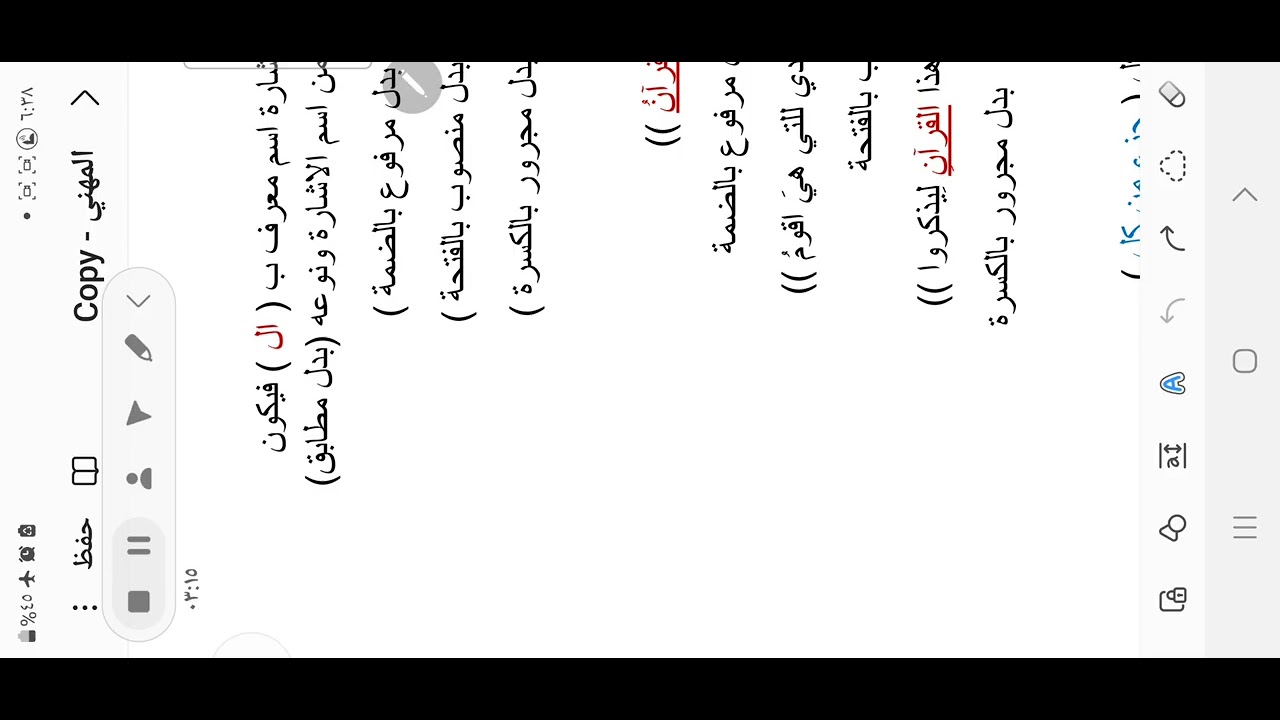 ٦:٢٨
المهني - Copy
حفظ
٪٤٥
٠٣:١٥
اسم معرف ب ( ال ) فيكون
اسم الاشارة ونوعه (بدل مطابق)
بدل مرفوع بالضمة )
بدل منصوب بالفتحة )
بدل مجرور بالكسرة )
))
مرفوع بالضمة
للتي هيَ اقومُ ))
بالفتحة
هذا القرآنِ لِيذكروا ))
بدل مجرور بالكسرة
( جزء من كل )